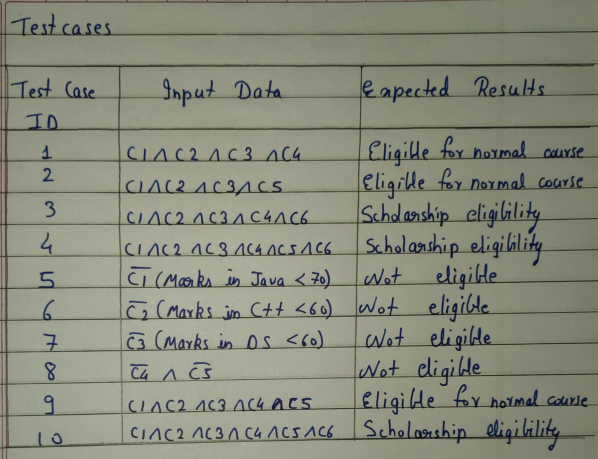 Test cases
Test Case Input Data Expected Results
ID
1 C1 ∧ C2 ∧ C3 ∧ C4 Eligible for normal course
2 C1 ∧ C2 ∧ C3 ∧ C5 Eligible for normal course
3 C1 ∧ C2 ∧ C3 ∧ C4 ∧ C6 Scholarship eligibility
4 C1 ∧ C2 ∧ C3 ∧ C4 ∧ C5 ∧ C6 Scholarship eligibility
5 C̅1̅ (Marks in Java < 70) Not eligible
6 C̅2̅ (Marks in C++ < 60) Not eligible
7 C̅3̅ (Marks in DS < 60) Not eligible
8 C̅4̅ ∧ C̅5̅ Not eligible
9 C1 ∧ C2 ∧ C3 ∧ C4 ∧ C5 Eligible for normal course
10 C1 ∧ C2 ∧ C3 ∧ C4 ∧ C5 ∧ C6 Scholarship eligibility